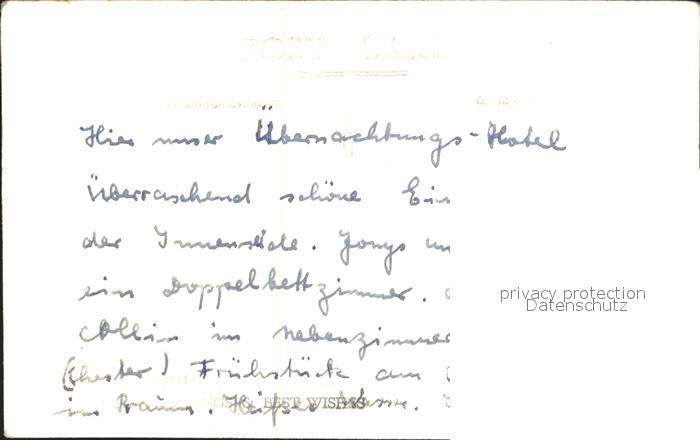 Hier unser Übernachtungs-Hotel
Überraschend schöne Ein
der Innenräde. Jonys un
ein Doppelbettzimmer.
Albin im Nebenzimmer
(Chester) Frühstück am
im Raum. Heißes Wasser.
& BEST WISHES
privacy protection
Datenschutz